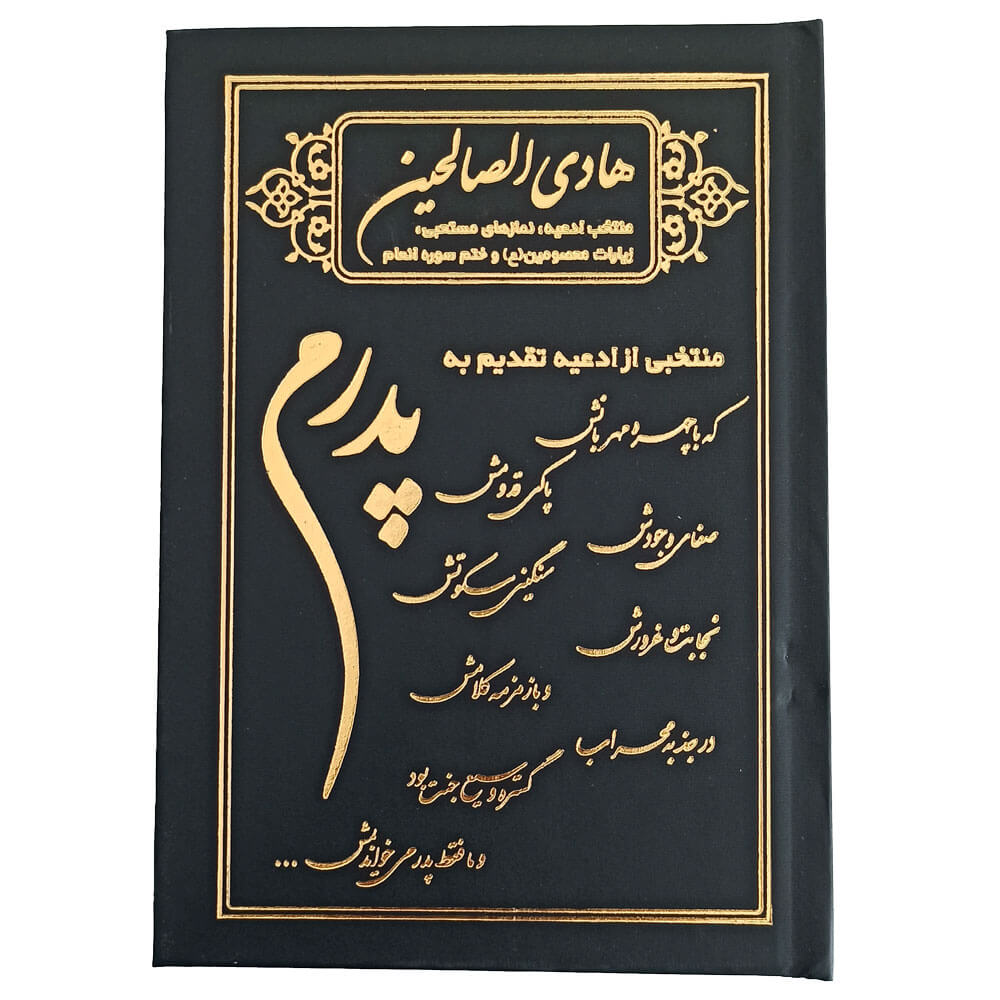 هادی الصالحین
منتخب ادعیه، نمازهای مستحبی،
زیارات معصومین(ع) و ختم سوره انعام
منتخبی از ادعیه تقدیم به
پدرم
که با چهره مهربانش
پاکی قدومش
صفای وجودش
سنگینی سکوتش
نجابت و غرورش
و با زمزمه کلامش
در جذبه محرابها
گستره وسیع جنت بود
و ما فقط پدر می خواندیمش ...